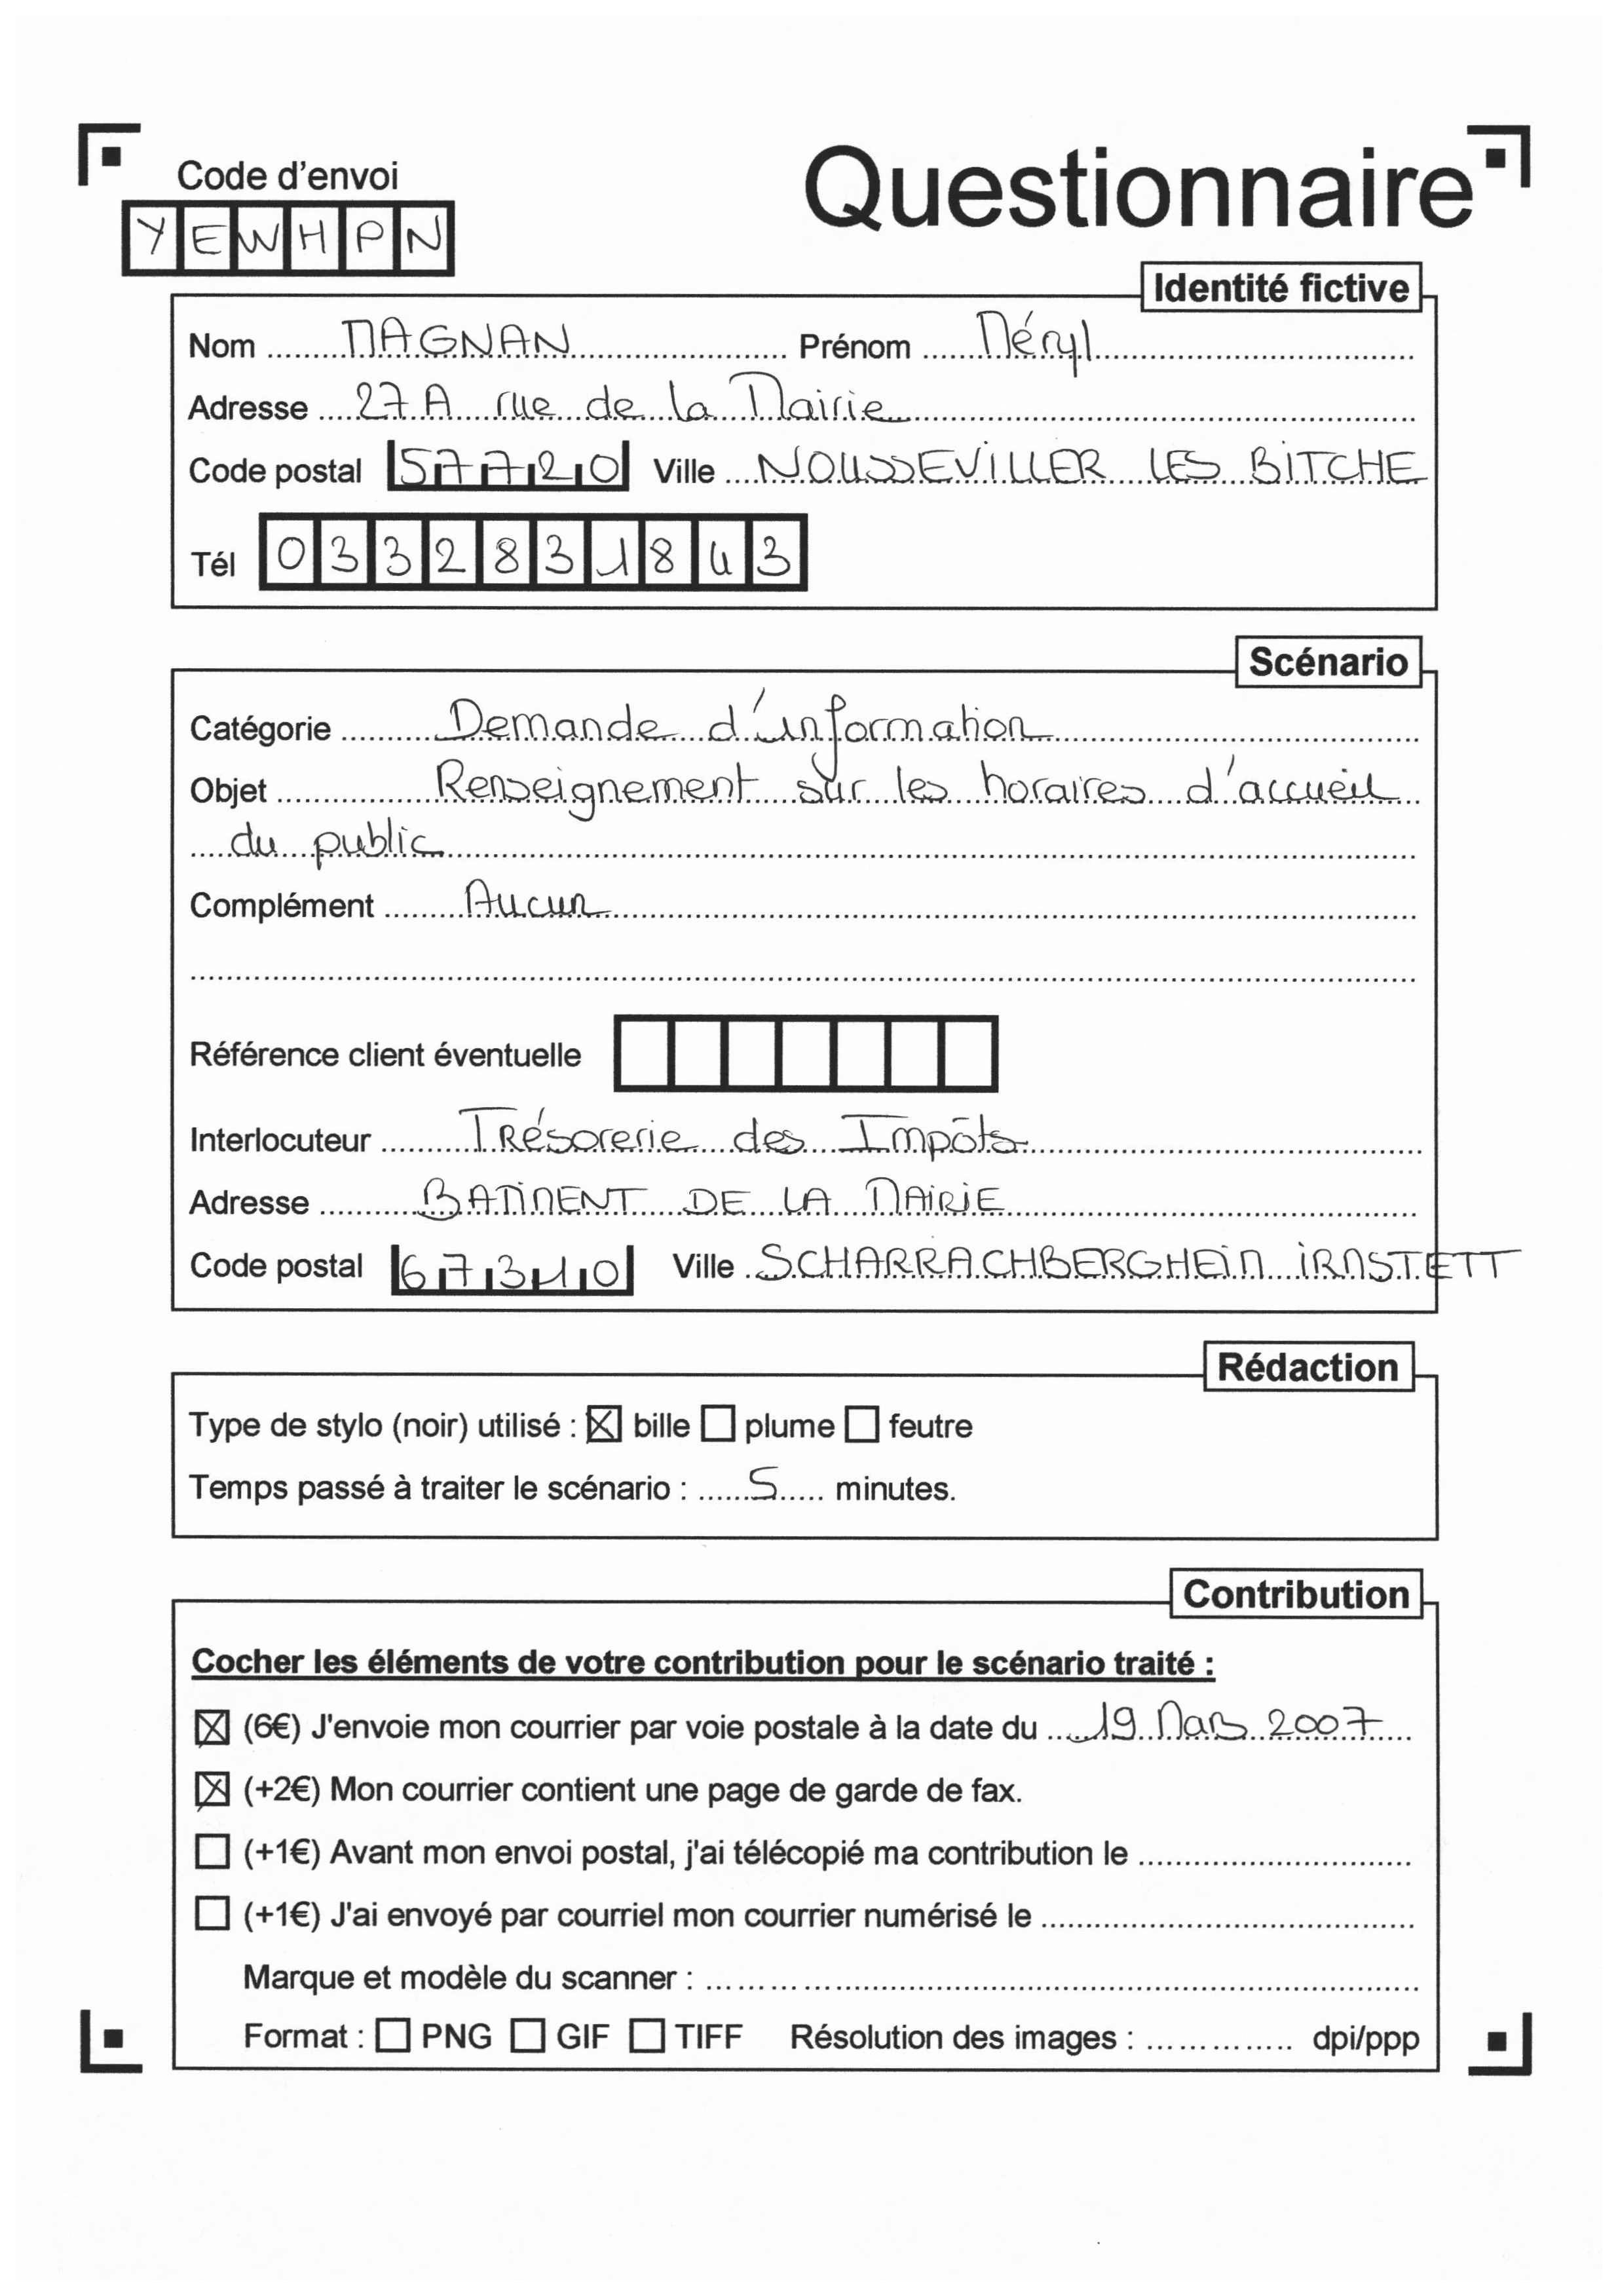 Code d'envoi
Questionnaire
YEWHPN
Identité fictive
Nom MAGNAN Prénom Méryl
Adresse 27A rue de la Mairie
Code postal 57720 Ville NOUSSEVILLER LES BITCHE
Tél 0332831843
Scénario
Catégorie Demande d'information
Objet Renseignement sur les horaires d'accueil
du public
Complément Aucun
Référence client éventuelle
Interlocuteur Trésorerie des Impôts
Adresse BATIMENT DE LA MAIRIE
Code postal 67310 Ville SCHARRACHBERGHEIM IRMSTETT
Rédaction
Type de stylo (noir) utilisé : ☒ bille ☐ plume ☐ feutre
Temps passé à traiter le scénario : 5 minutes.
Contribution
Cocher les éléments de votre contribution pour le scénario traité :
☒ (6€) J'envoie mon courrier par voie postale à la date du 19 Mars 2007
☒ (+2€) Mon courrier contient une page de garde de fax.
☐ (+1€) Avant mon envoi postal, j'ai télécopié ma contribution le
☐ (+1€) J'ai envoyé par courriel mon courrier numérisé le
Marque et modèle du scanner :
Format : ☐ PNG ☐ GIF ☐ TIFF Résolution des images : dpi/ppp